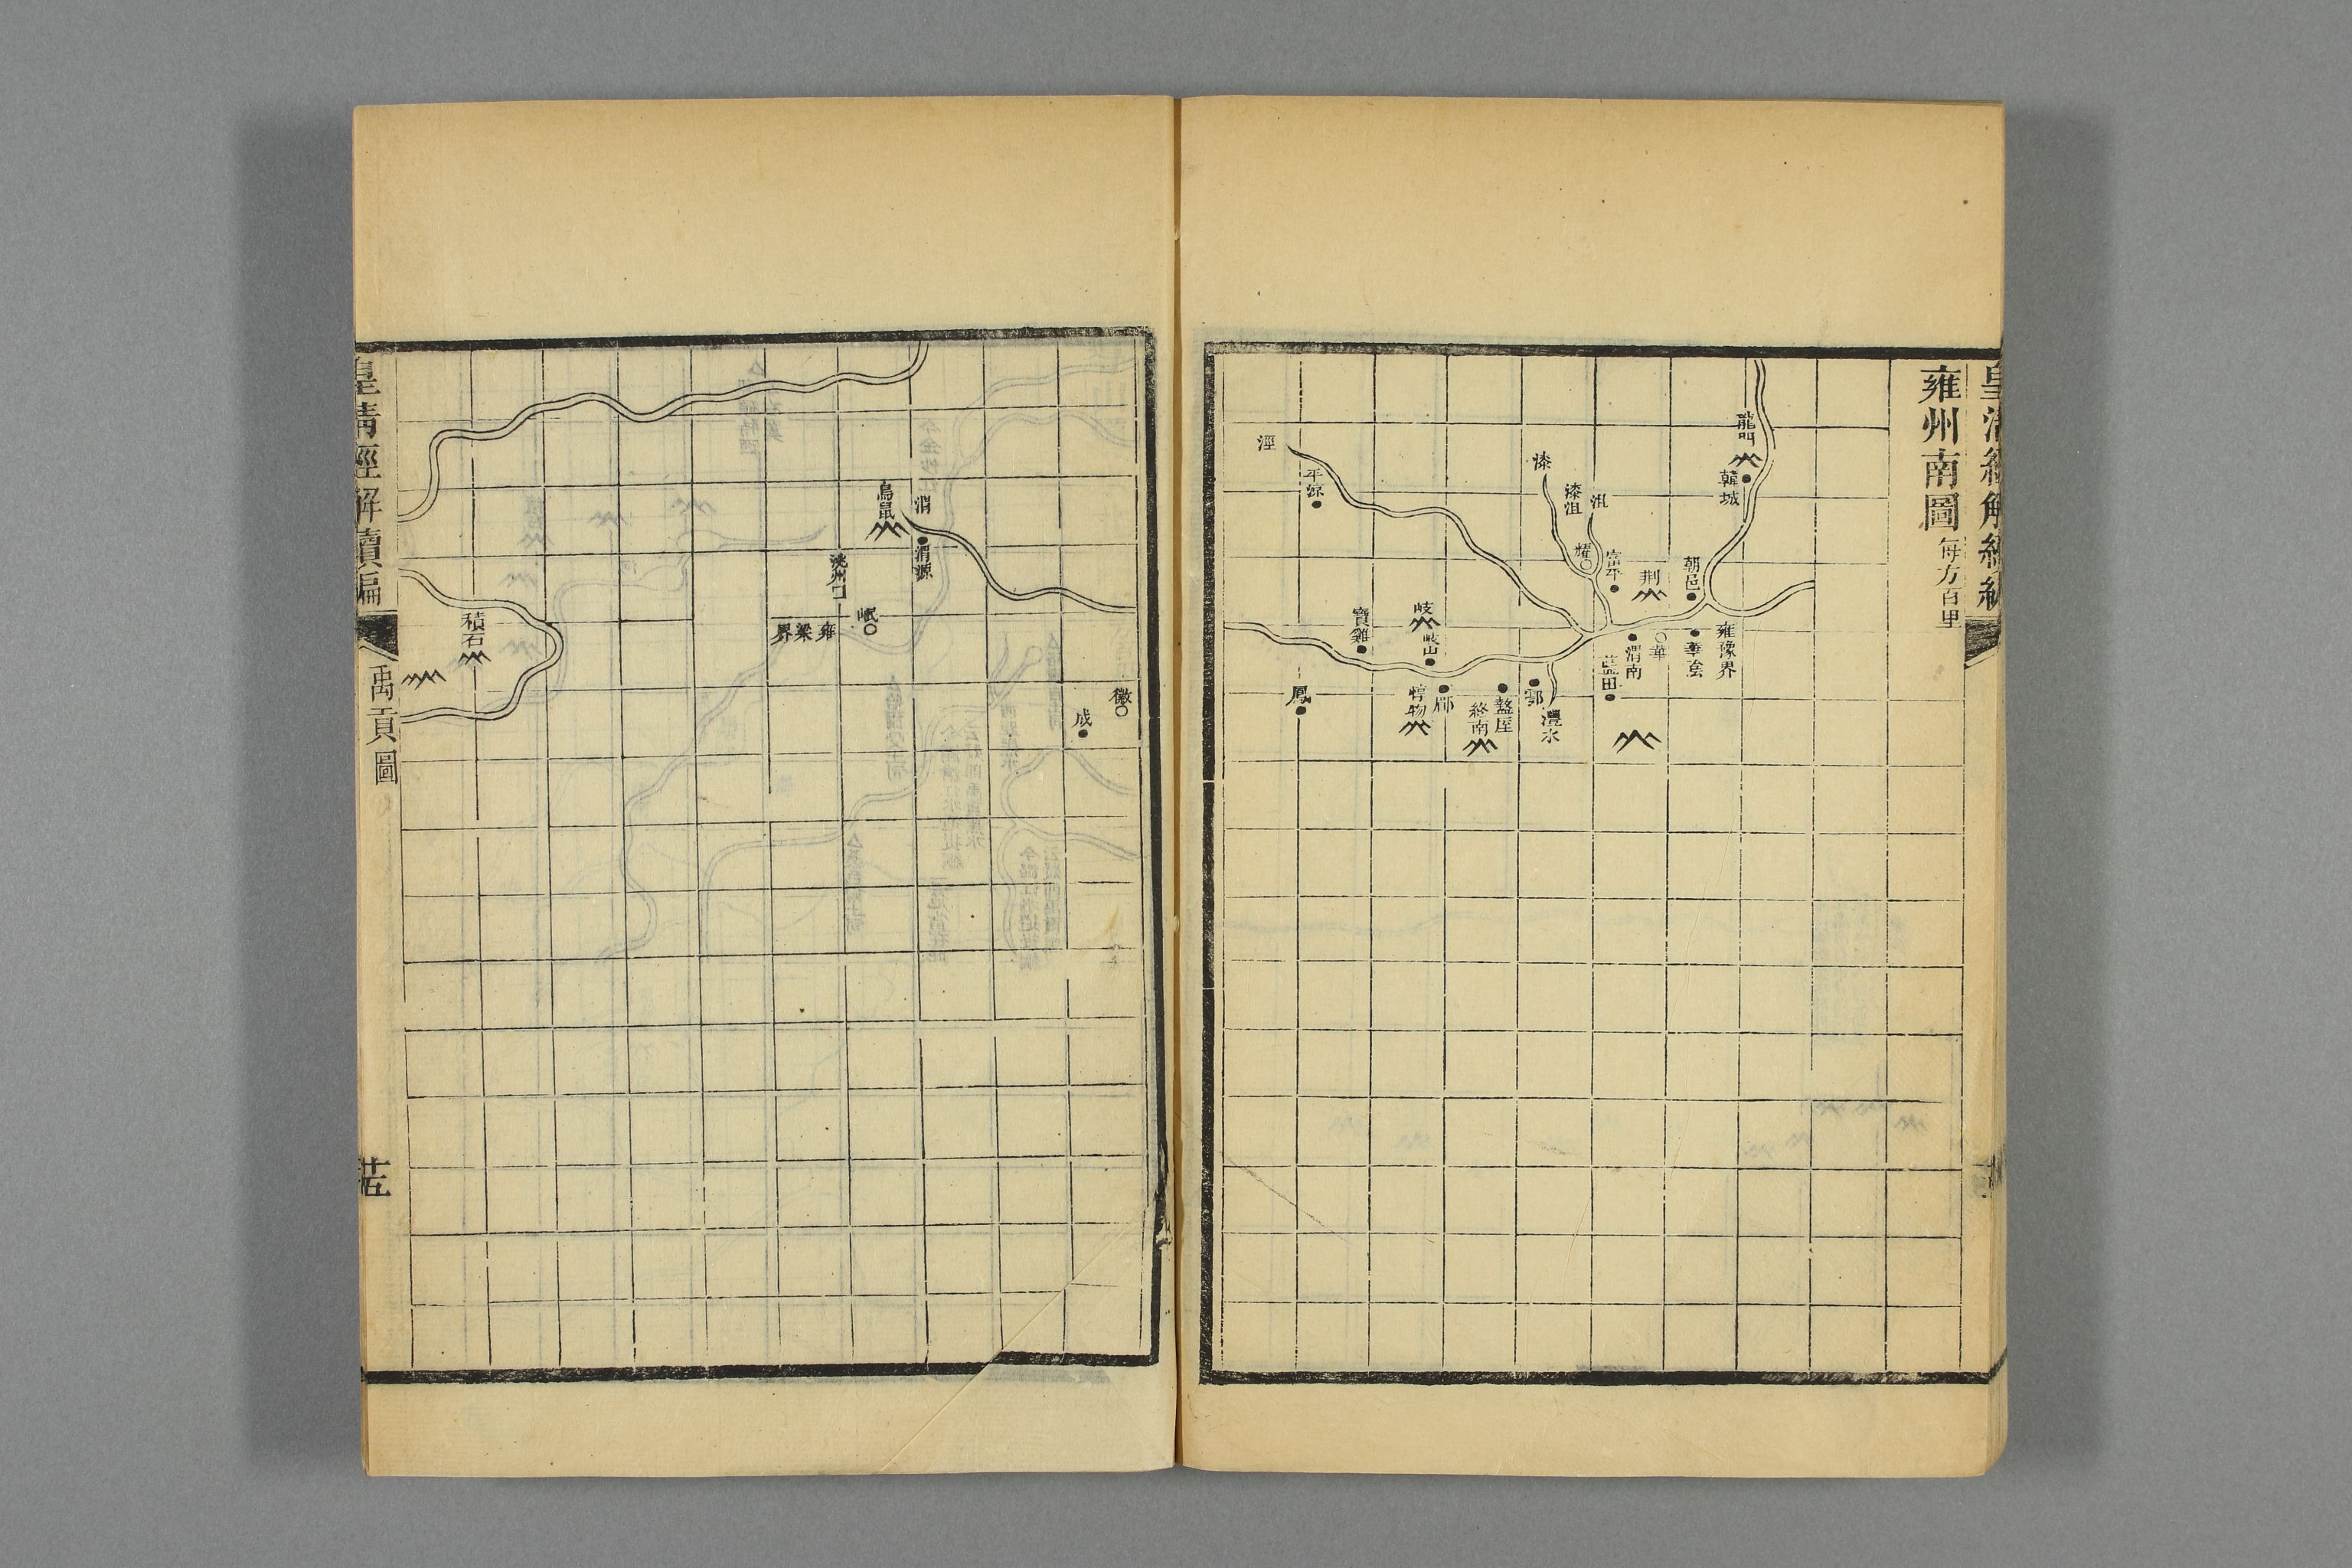 雍州南圖 每方百里
龍門
韓城
雍豫界
朝邑
華陰
華
荆
渭南
富平
藍田
沮
漆沮
耀
漆
灃水
鄠
盩厔
終南
郿
惇物
岐
岐山
寶雞
平涼
鳳
涇
徽
成
渭
渭源
鳥鼠
岷
洮州口
雍梁界
積石
皇清經解續編
禹貢圖